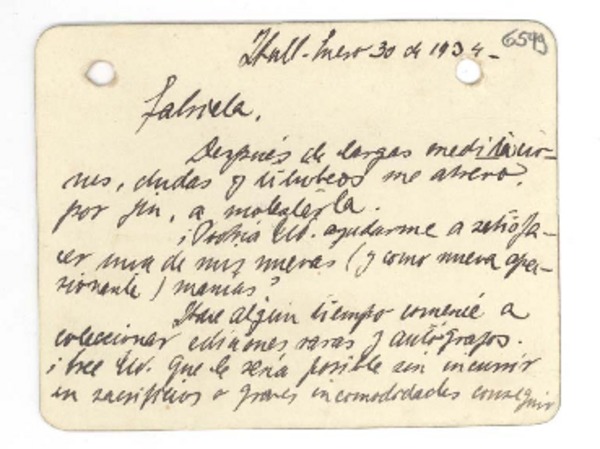 Hull - Enero 30 de 1934 - 6549
Gabriela,
Después de largas meditacio-
nes, dudas y titubeos me atrevo,
por fin, a molestarla.
¿Podría Ud. ayudarme a satisfa-
cer una de mis nuevas (y como nueva apa-
sionante) manías?
Hace algún tiempo comencé a
coleccionar ediciones raras y autógrafos.
¿Cree Ud. que le sería posible sin incurrir
en sacrificios o graves incomodidades conseguir